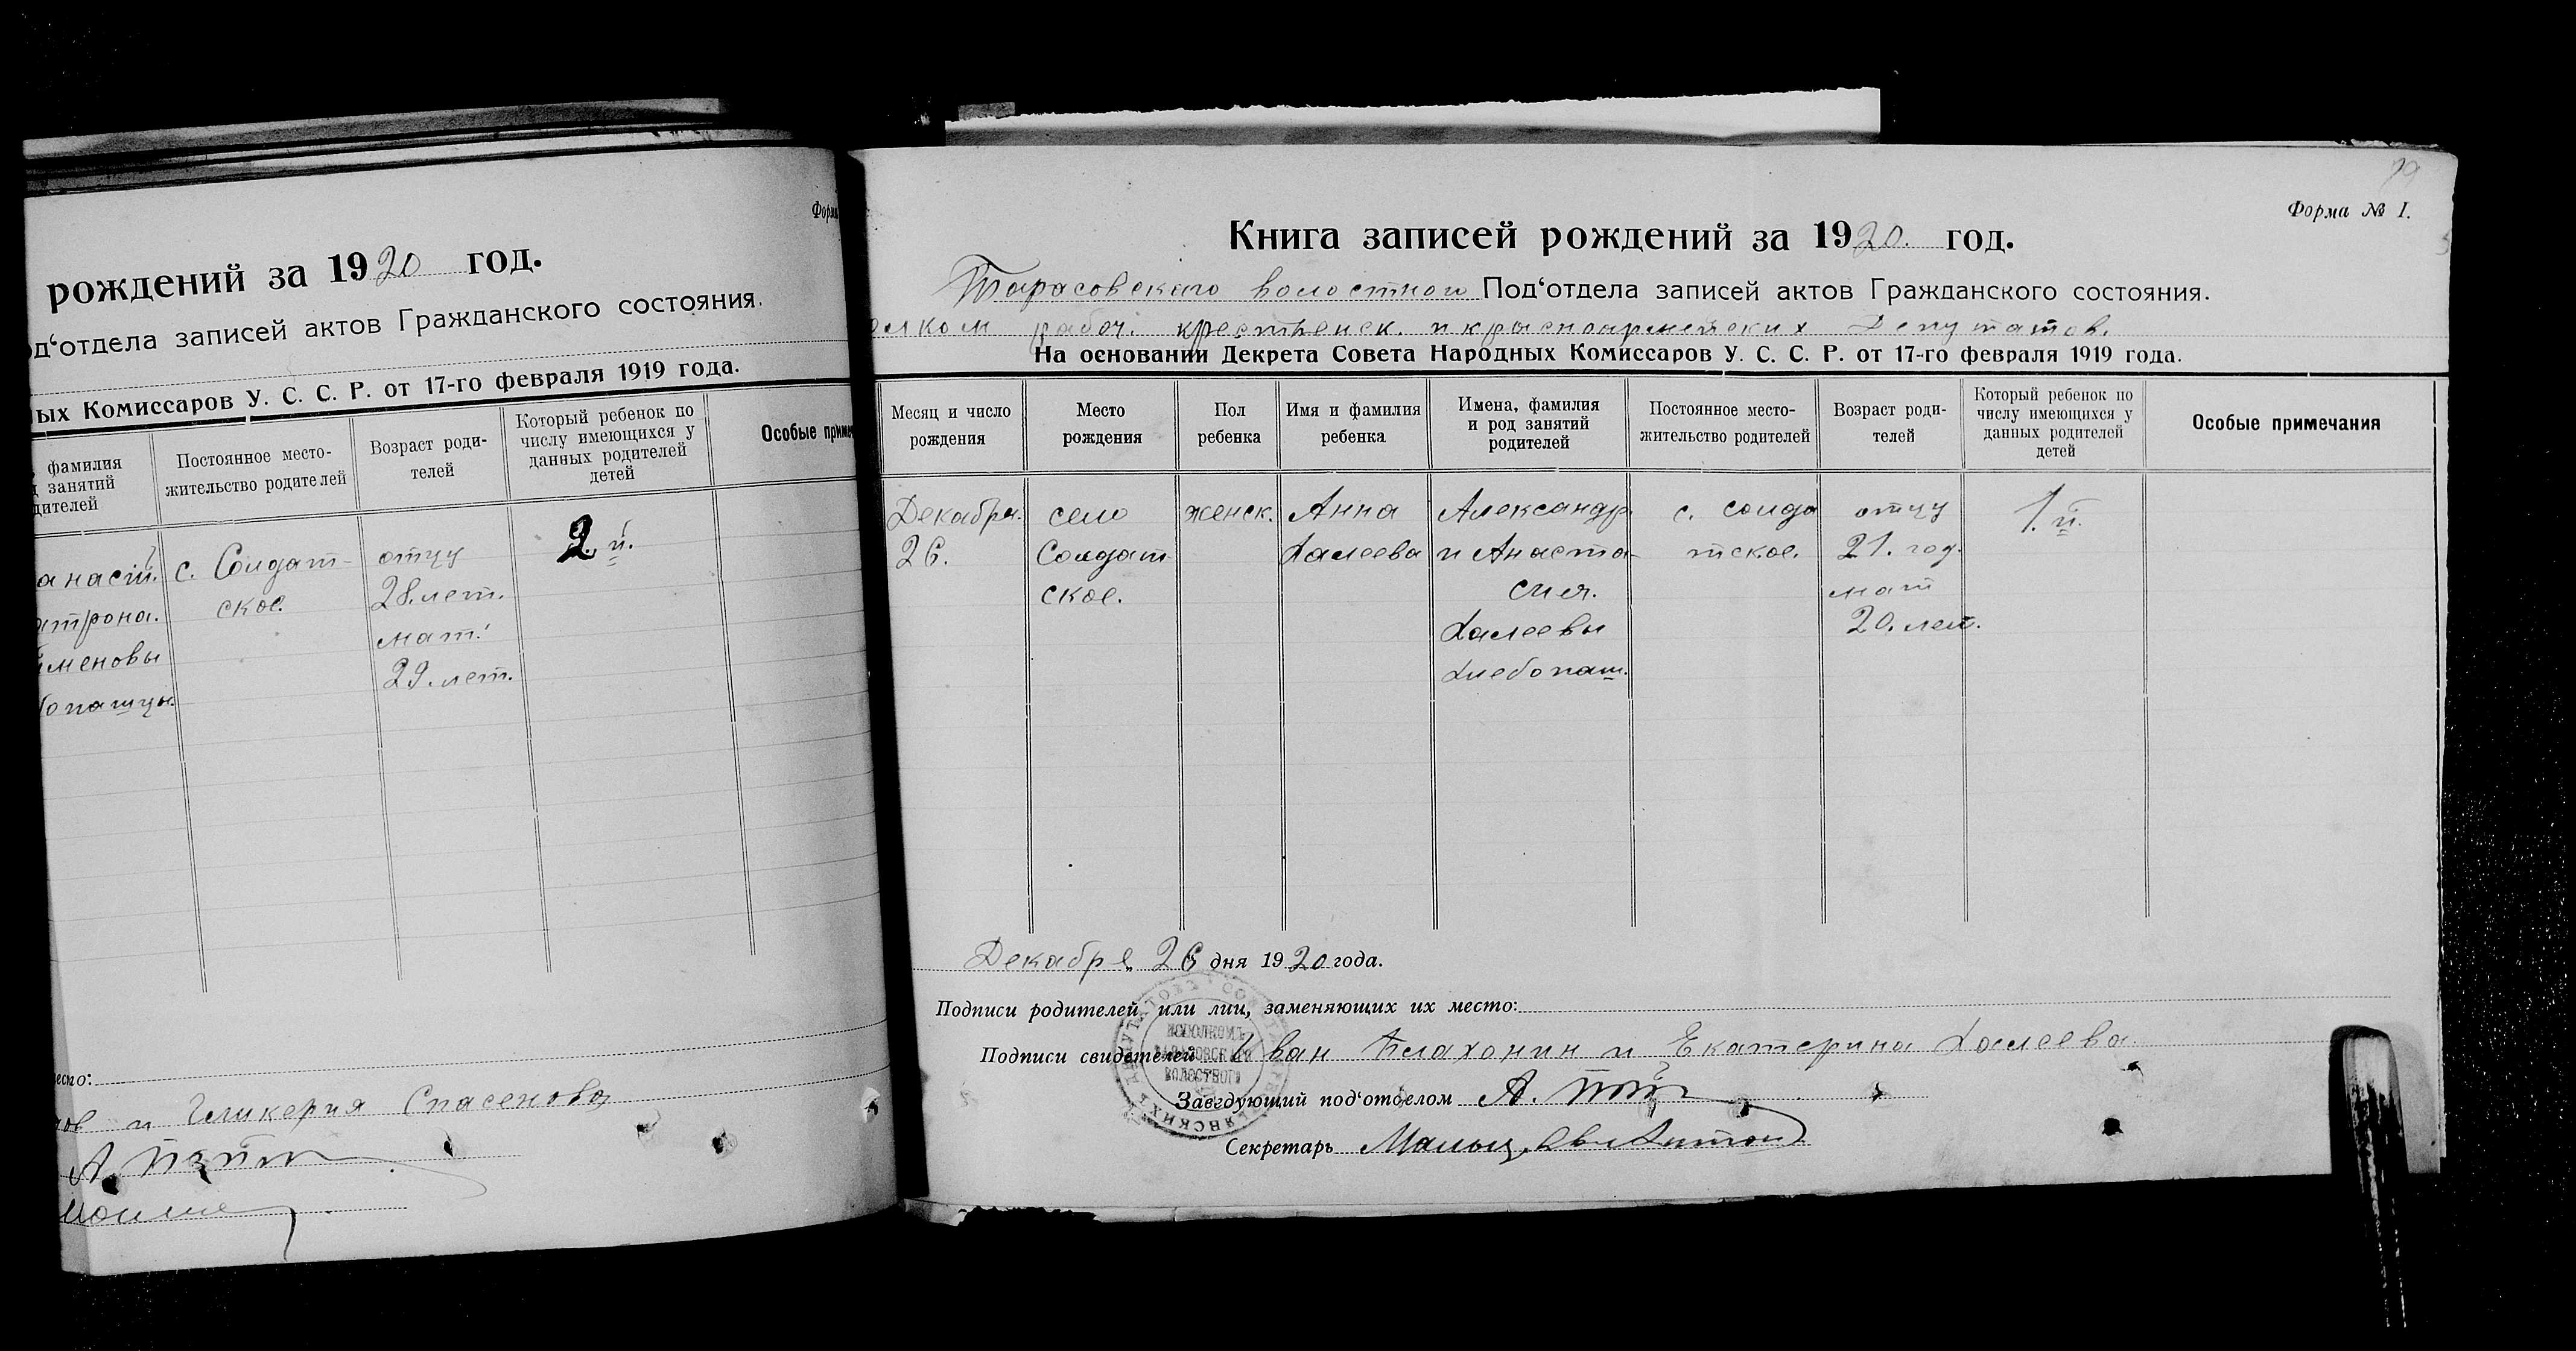 Форма
рождений за 1920 год.
од‘отдела записей актов Гражданского состояния.
ых Комиссаров У. С. С. Р. от 17-го февраля 1919 года.
фамилия
занятий
дителей
Постоянное место-
жительство родителей
Возраст роди-
телей
Который ребенок по
числу имеющихся у
данных родителей
детей
Особые приме
анасій.
атрона.
меновы
опашцы.
с. Солдат-
ское.
отцу
28. лет.
мат.
29. лет.
2. й.
есто:
ов и Гликерия Спасенова
А.
79
Форма № I.
Книга записей рождений за 1920. год.
Тарасовскаго волостного Под‘отдела записей актов Гражданского состояния.
олком рабоч. крестьянск. и красноармейских Депутатов.
На основании Декрета Совета Народных Комиссаров У. С. С. Р. от 17-го февраля 1919 года.
Месяц и число
рождения
Место
рождения
Пол
ребенка
Имя и фамилия
ребенка
Имена, фамилия
и род занятий
родителей
Постоянное место-
жительство родителей
Возраст роди-
телей
Который ребенок по
числу имеющихся у
данных родителей
детей
Особые примечания
Декабря.
26.
село
Солдат
ское.
женск.
Анна
Халеева
Александр
и Анаста-
сия.
Халеевы
Хлебопаш.
с. солда
тское.
отцу
21. год.
мат
20. лет.
1. й.
Декабря 26 дня 1920 года.
Подписи родителей или лиц, заменяющих их место:
Подписи свидетелей Иван Плахонин и Екатерина Халеева
Заведующий под‘отделом А.
Секретарь
ИСПОЛКОМЪ
ТАРАСОВСКАГО
ВОЛОСТНОГО